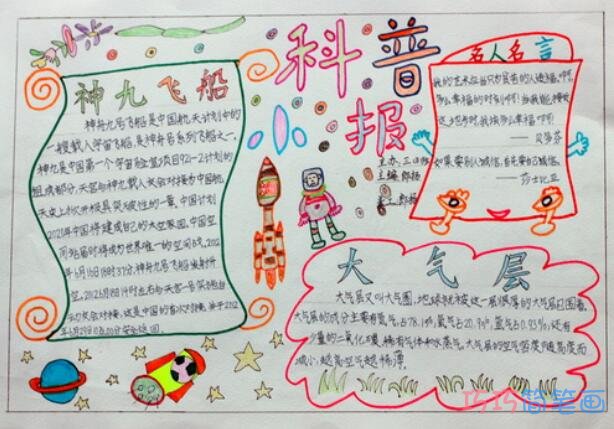 科普
小报
神九飞船
神舟九号飞船是中国航天计划中的
一艘载人宇宙飞船,是神舟号系列飞船之一,
神九是中国第一个宇宙实验室项目921-2计划的
组成部分,天宫与神九载人交会对接为中国航
天史上掀开极具突破性的一章,中国计划
2020年中国将建成自己的太空家园,中国空
间站届时将成为世界唯一的空间站,2012
年6月16日18时37分,神舟九号飞船发射升
空,2012年6月18日14时左右与天宫一号实施自
动交会对接,这是中国的首次
年6月29日10点00分安全返回。
名人名言
我的艺术应当只为贫苦的人造福。啊,
多么幸福的时刻啊!当我能接近
这地步时,我该多么幸福啊!
——贝多芬
如果要别人诚信,首先要自己诚信。
——莎士比亚
主办:三
主编:
大气层
大气层又叫大气圈,地球就被这一层很厚的大气层包围着。
大气层的成分主要有氮气,占78.1%;氧气占20.9%;氩气占0.93%;还有
少量的二氧化碳、稀有气体和水蒸气。大气层的空气密度随高度而
减小,越高空气越稀薄。
巧巧简笔画